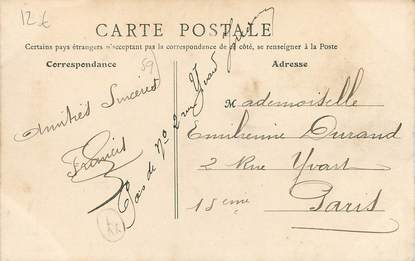 12 €
59
CARTE POSTALE
Certains pays étrangers n'acceptant pas la correspondance de ce côté, se renseigner à la Poste
Correspondance
Adresse
Amitiés Sincères
Francis
Pas de No 2 rue Yvart
Mademoiselle
Emilienne Durand
2 Rue Yvart
15eme Paris